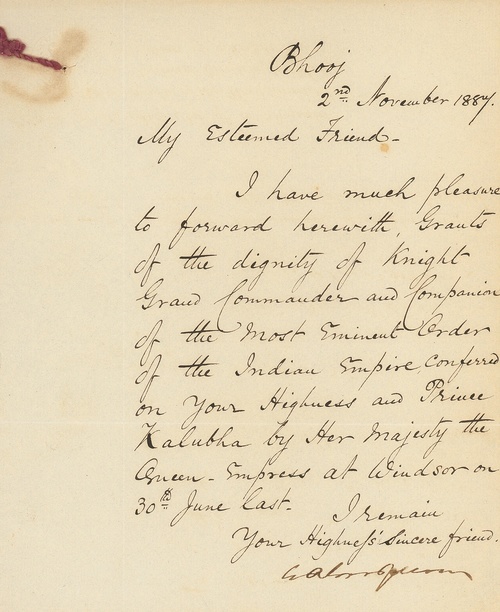 Bhooj
2nd November 1887.
My Esteemed Friend -
I have much pleasure
to forward herewith, Grants
of the dignity of Knight
Grand Commander and Companion
of the Most Eminent Order
of the Indian Empire, conferred
on Your Highness and Prince
Kalubha by Her Majesty the
Queen-Empress at Windsor on
30th June last.
I remain
Your Highness' Sincere friend.